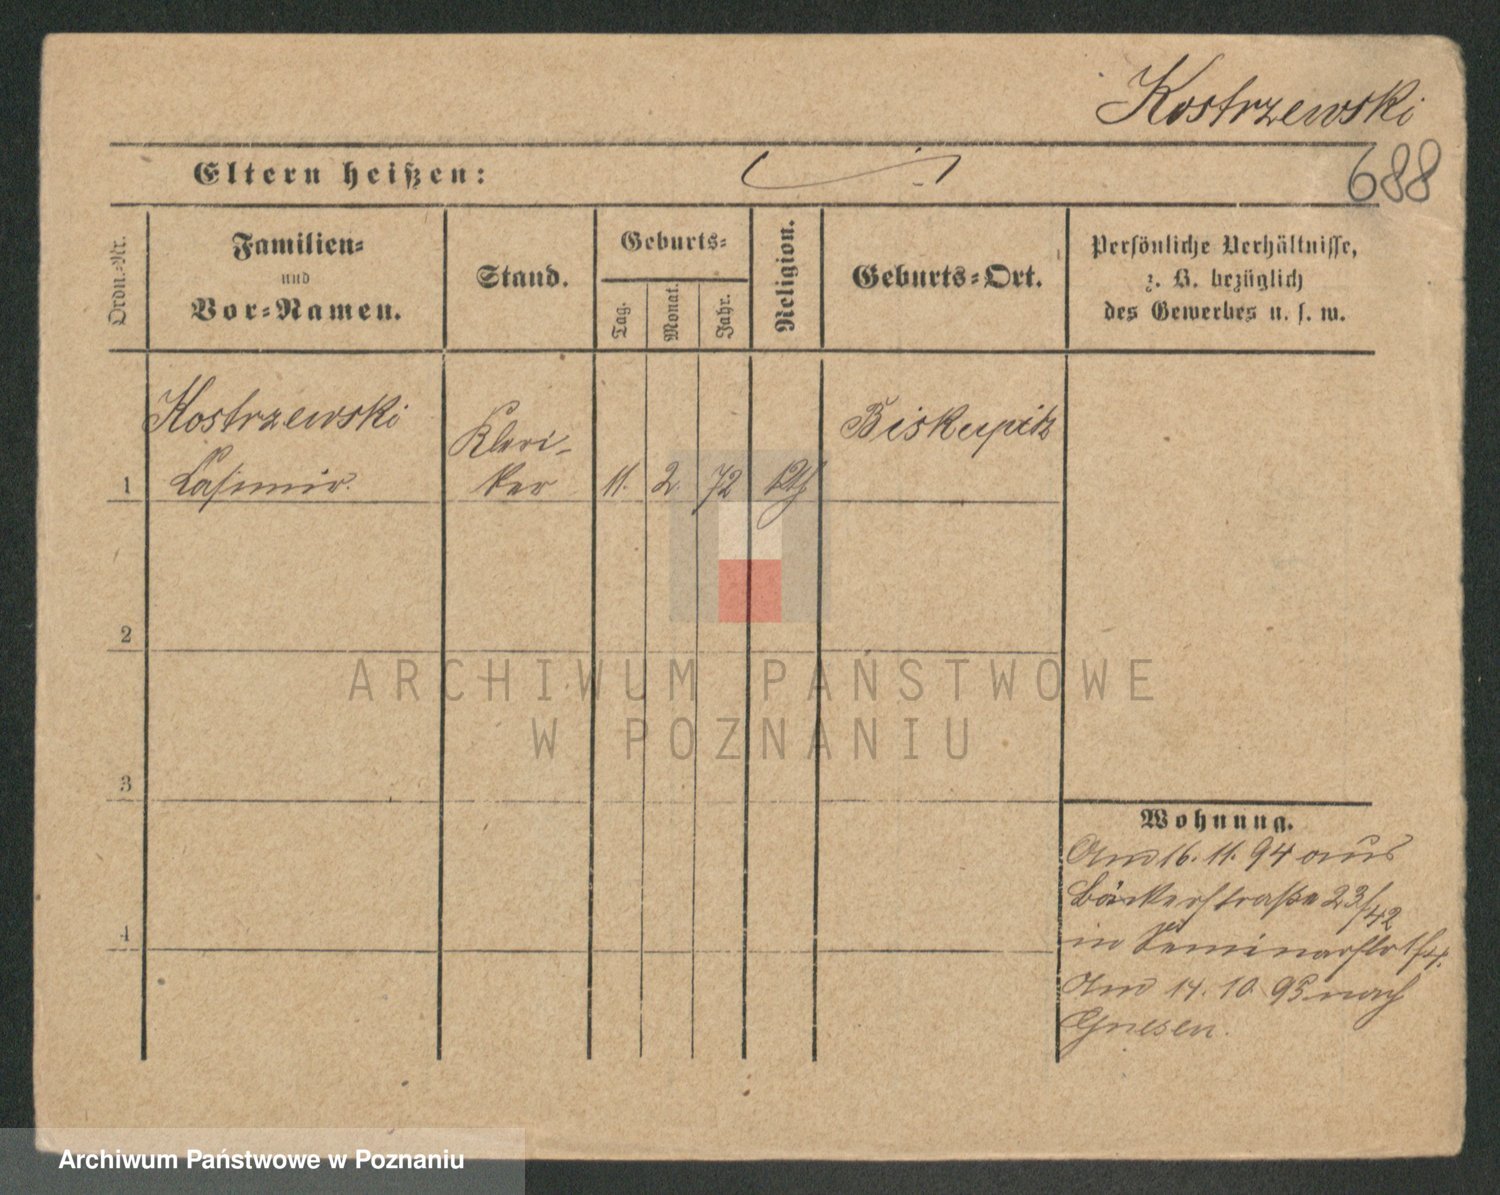 Kostrzewski
688
Eltern heißen:
Ordn.-Nr.
Familien-
und
Vor-Namen.
Stand.
Geburts-
Tag.
Monat.
Jahr.
Religion.
Geburts-Ort.
Persönliche Verhältnisse,
z. B. bezüglich
des Gewerbes u. s. w.
Kostrzewski
Casimir.
Kleri-
ker
1
11.
2.
72
Biskupitz
2
3
4
Wohnung.
Am 16. 11. 94 aus
Bäckerstraße 23/42
in Seminarstr
Am 14. 10. 95 nach
Gnesen.
ARCHIWUM PAŃSTWOWE
W POZNANIU
Archiwum Państwowe w Poznaniu